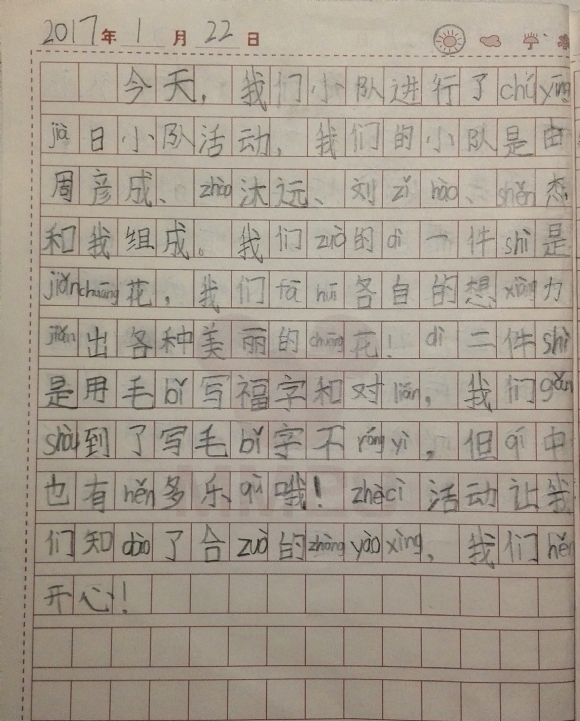 2017年1月22日
今天，我们小队进行了chú yīng
jià日小队活动，我们的小队是由
周彦成、zhào沐远、刘zǐ hào、shěn
和我组成。我们zuò的dì一件shì是
jiǎn chuāng花，我们fā huī各自的想xiàng力
jiǎn出各种美丽的chuāng花！dì二件shì
是用毛bǐ写福字和对lián，我们gǎn
shòu到了写毛bǐ字不róng yì，但qí中
也有hěn多乐qù哦！zhè cì活动让我
们知dào了合zuò的zhòng yào xìng，我们hěn
开心！